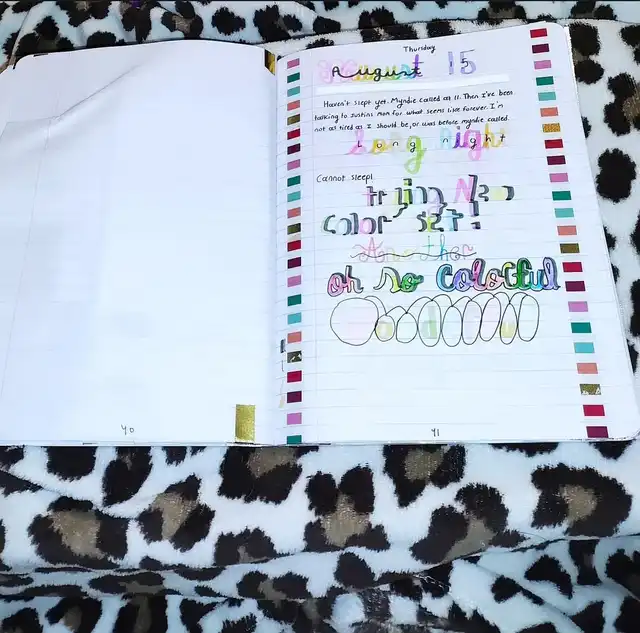 Thursday
August 15
Haven't slept yet. Myndie called at 11. Then I've been
talking to Justins Mom for what seems like forever. I'm
not as tired as I should be, or was before myndie called.
Long night
Cannot sleep!
trying New
Color set!
Another
oh so colorful
40
41